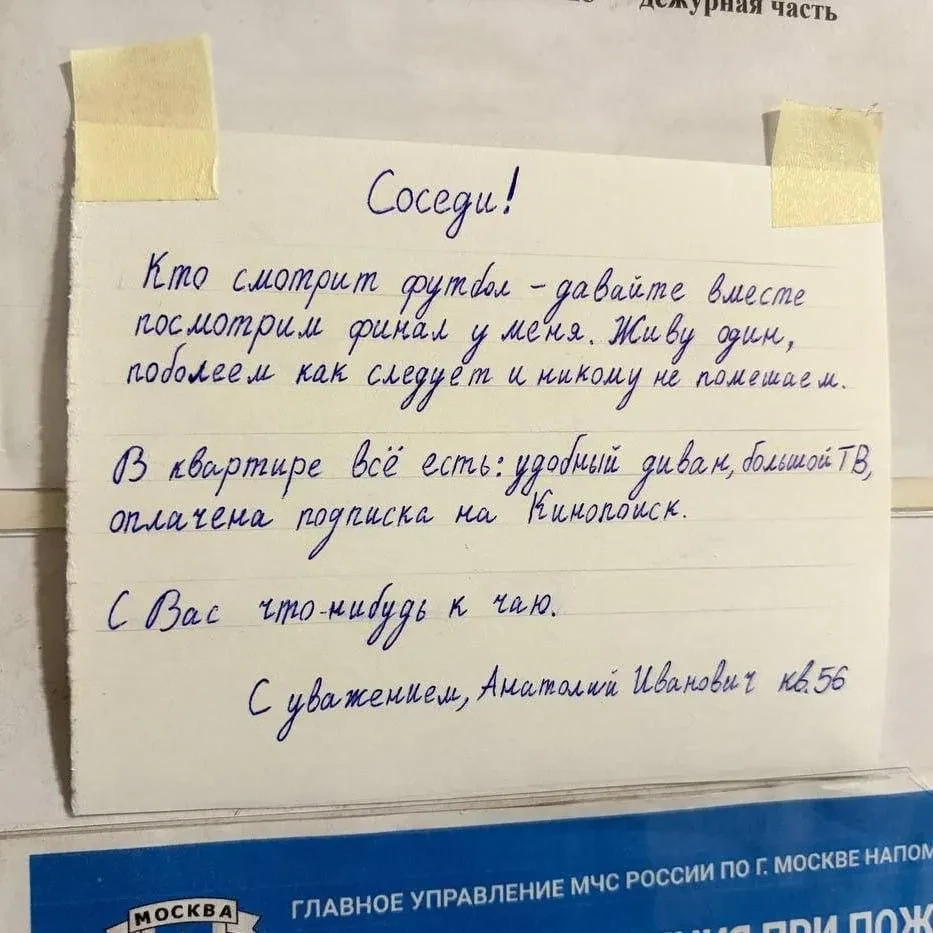 дежурная часть
Соседи!
Кто смотрит футбол – давайте вместе
посмотрим финал у меня. Живу один,
поболеем как следует и никому не помешаем.
В квартире всё есть: удобный диван, большой ТВ,
оплачена подписка на Кинопоиск.
С Вас что-нибудь к чаю.
С уважением, Анатолий Иванович кв.56
ГЛАВНОЕ УПРАВЛЕНИЕ МЧС РОССИИ ПО Г. МОСКВЕ НАПОМ
МОСКВА
ПРИ ПОЖ